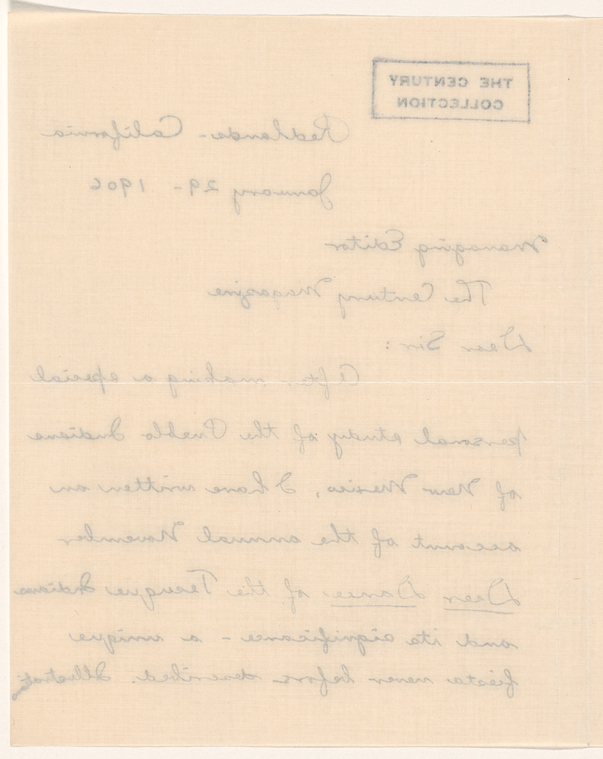 THE CENTURY
COLLECTION
Redlands - California
January 29 - 1906
Managing Editor
The Century Magazine
Dear Sir:
After making a special
personal study of the Pueblo Indians
of New Mexico, I have written an
account of the annual November
Deer Dance of the Tesuque Indians
and its significance - a unique
fiesta never before described.